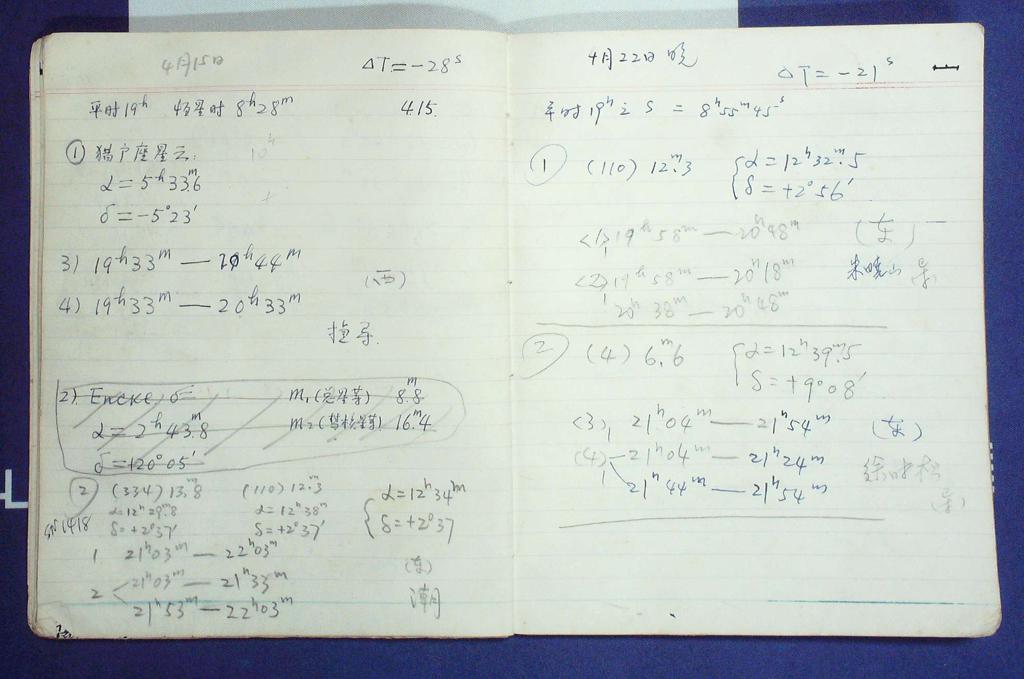 4月15日 ΔT=-28ˢ
平时19ʰ 恒星时 8ʰ28ᵐ 4.15.
① 猎户座星云: 10ʰ
α=5ʰ33ᵐ.6
δ=-5°23′
3) 19ʰ33ᵐ — 20ʰ44ᵐ
(西)
4) 19ʰ33ᵐ — 20ʰ33ᵐ
指导
2) Encke m₁(总星等) 8ᵐ.8
α=2ʰ43ᵐ.8 m₂(慧核星等) 16ᵐ.4
δ=+20°05′
② (334) 13ᵐ.8 (110) 12ᵐ.3 α=12ʰ34ᵐ
α=12ʰ29ᵐ.8 α=12ʰ38ᵐ δ=+2°37
δ=+2°37′ δ=+2°37′
1418
1 21ʰ03ᵐ — 22ʰ03ᵐ
(东)
2 21ʰ03ᵐ — 21ʰ33ᵐ
21ʰ53ᵐ — 22ʰ03ᵐ 潮
4月22日 晚
ΔT=-21ˢ
平时19ʰ之 S = 8ʰ55ᵐ45ˢ
① (110) 12ᵐ.3 α=12ʰ32ᵐ.5
δ=+2°56′
<1> 19ʰ58ᵐ — 20ʰ48ᵐ (东)
<2> 19ʰ58ᵐ — 20ʰ18ᵐ 朱晓山 导
20ʰ38ᵐ — 20ʰ48ᵐ
② (4) 6ᵐ.6 α=12ʰ39ᵐ.5
δ=+9°08′
<3> 21ʰ04ᵐ — 21ʰ54ᵐ (东)
(4) 21ʰ04ᵐ — 21ʰ24ᵐ
21ʰ44ᵐ — 21ʰ54ᵐ
(导)